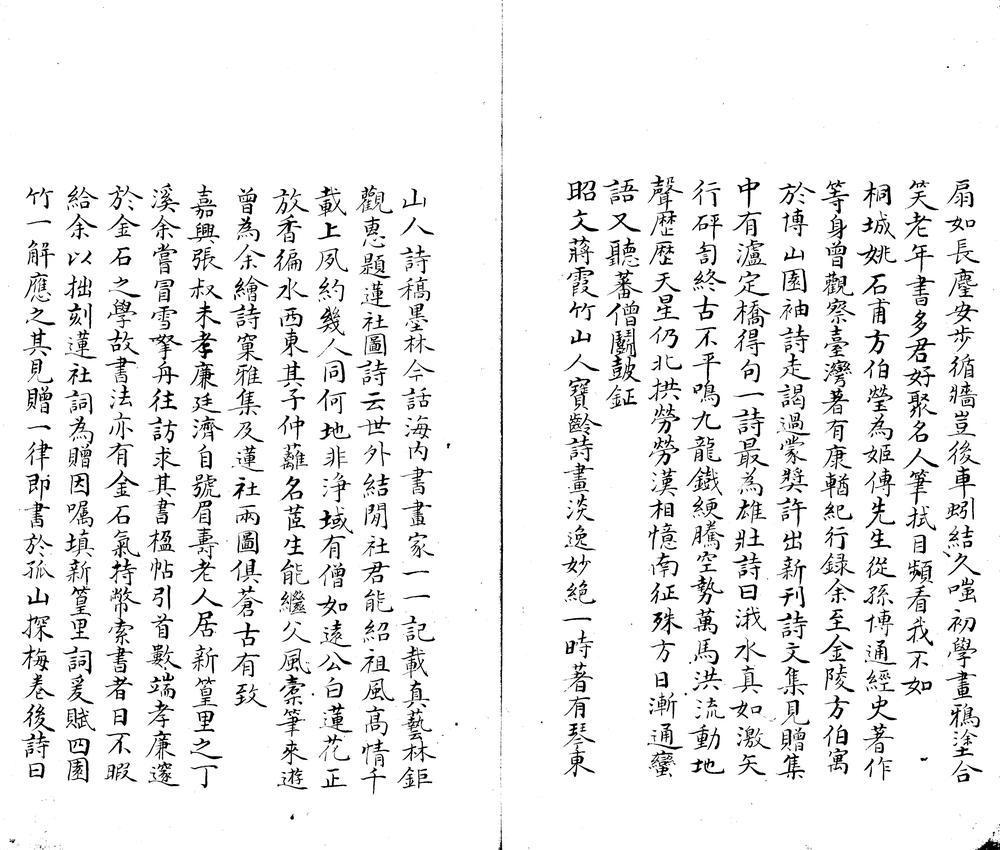 扇如長麈安步循牆豈後車蚓結久嗤初學畫鴉塗合
笑老年書多君好聚名人筆拭目頻看我不如
桐城姚石甫方伯瑩為姬傳先生從孫博通經史著作
等身曾觀察臺灣著有康輶紀行録余至金陵方伯寓
於博山園袖詩走謁過蒙獎許出新刊詩文集見贈集
中有瀘定橋得句一詩最為雄壯詩曰涐水真如激矢
行砰訇終古不平鳴九龍鐵綆騰空勢萬馬洪流動地
聲歷歷天星仍北拱勞勞漢相憶南征殊方日漸通蠻
語又聽蕃僧鬭鼓鉦
昭文蔣霞竹山人寶齡詩畫淡逸妙絕一時著有琴東
山人詩稿墨林今話海內書畫家一一記載真藝林鉅
觀惠題蓮社圖詩云世外結閒社君能紹祖風高情千
載上夙約幾人同何地非淨域有僧如遠公白蓮花正
放香徧水西東其子仲蘺名茝生能繼父風橐筆來遊
曾為余繪詩窠雅集及蓮社兩圖俱蒼古有致
嘉興張叔未孝廉廷濟自號眉壽老人居新篁里之丁
溪余嘗冒雪拏舟往訪求其書楹帖引首數端孝廉邃
於金石之學故書法亦有金石氣持幣索書者日不暇
給余以拙刻蓮社詞為贈因囑填新篁里詞爰賦四園
竹一解應之其見贈一律即書於孤山探梅卷後詩曰